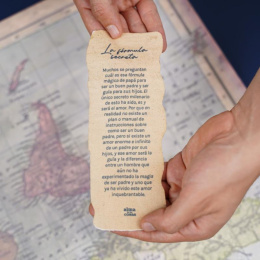 La fórmula
secreta
Muchos se preguntan
cuál es esa fórmula
mágica de papá para
ser un buen padre y ser
guía para sus hijos. El
único secreto milenario
de esto ha sido, es y
será el amor. Por que en
realidad no existe un
plan o manual de
instrucciones sobre
como ser un buen
padre, pero si existe un
amor enorme e infinito
de un padre por sus
hijos, y ese amor será la
guía y la diferencia
entre un hombre que
aún no ha
experimentado la magia
de ser padre y uno que
ya ha vivido este amor
inquebrantable.